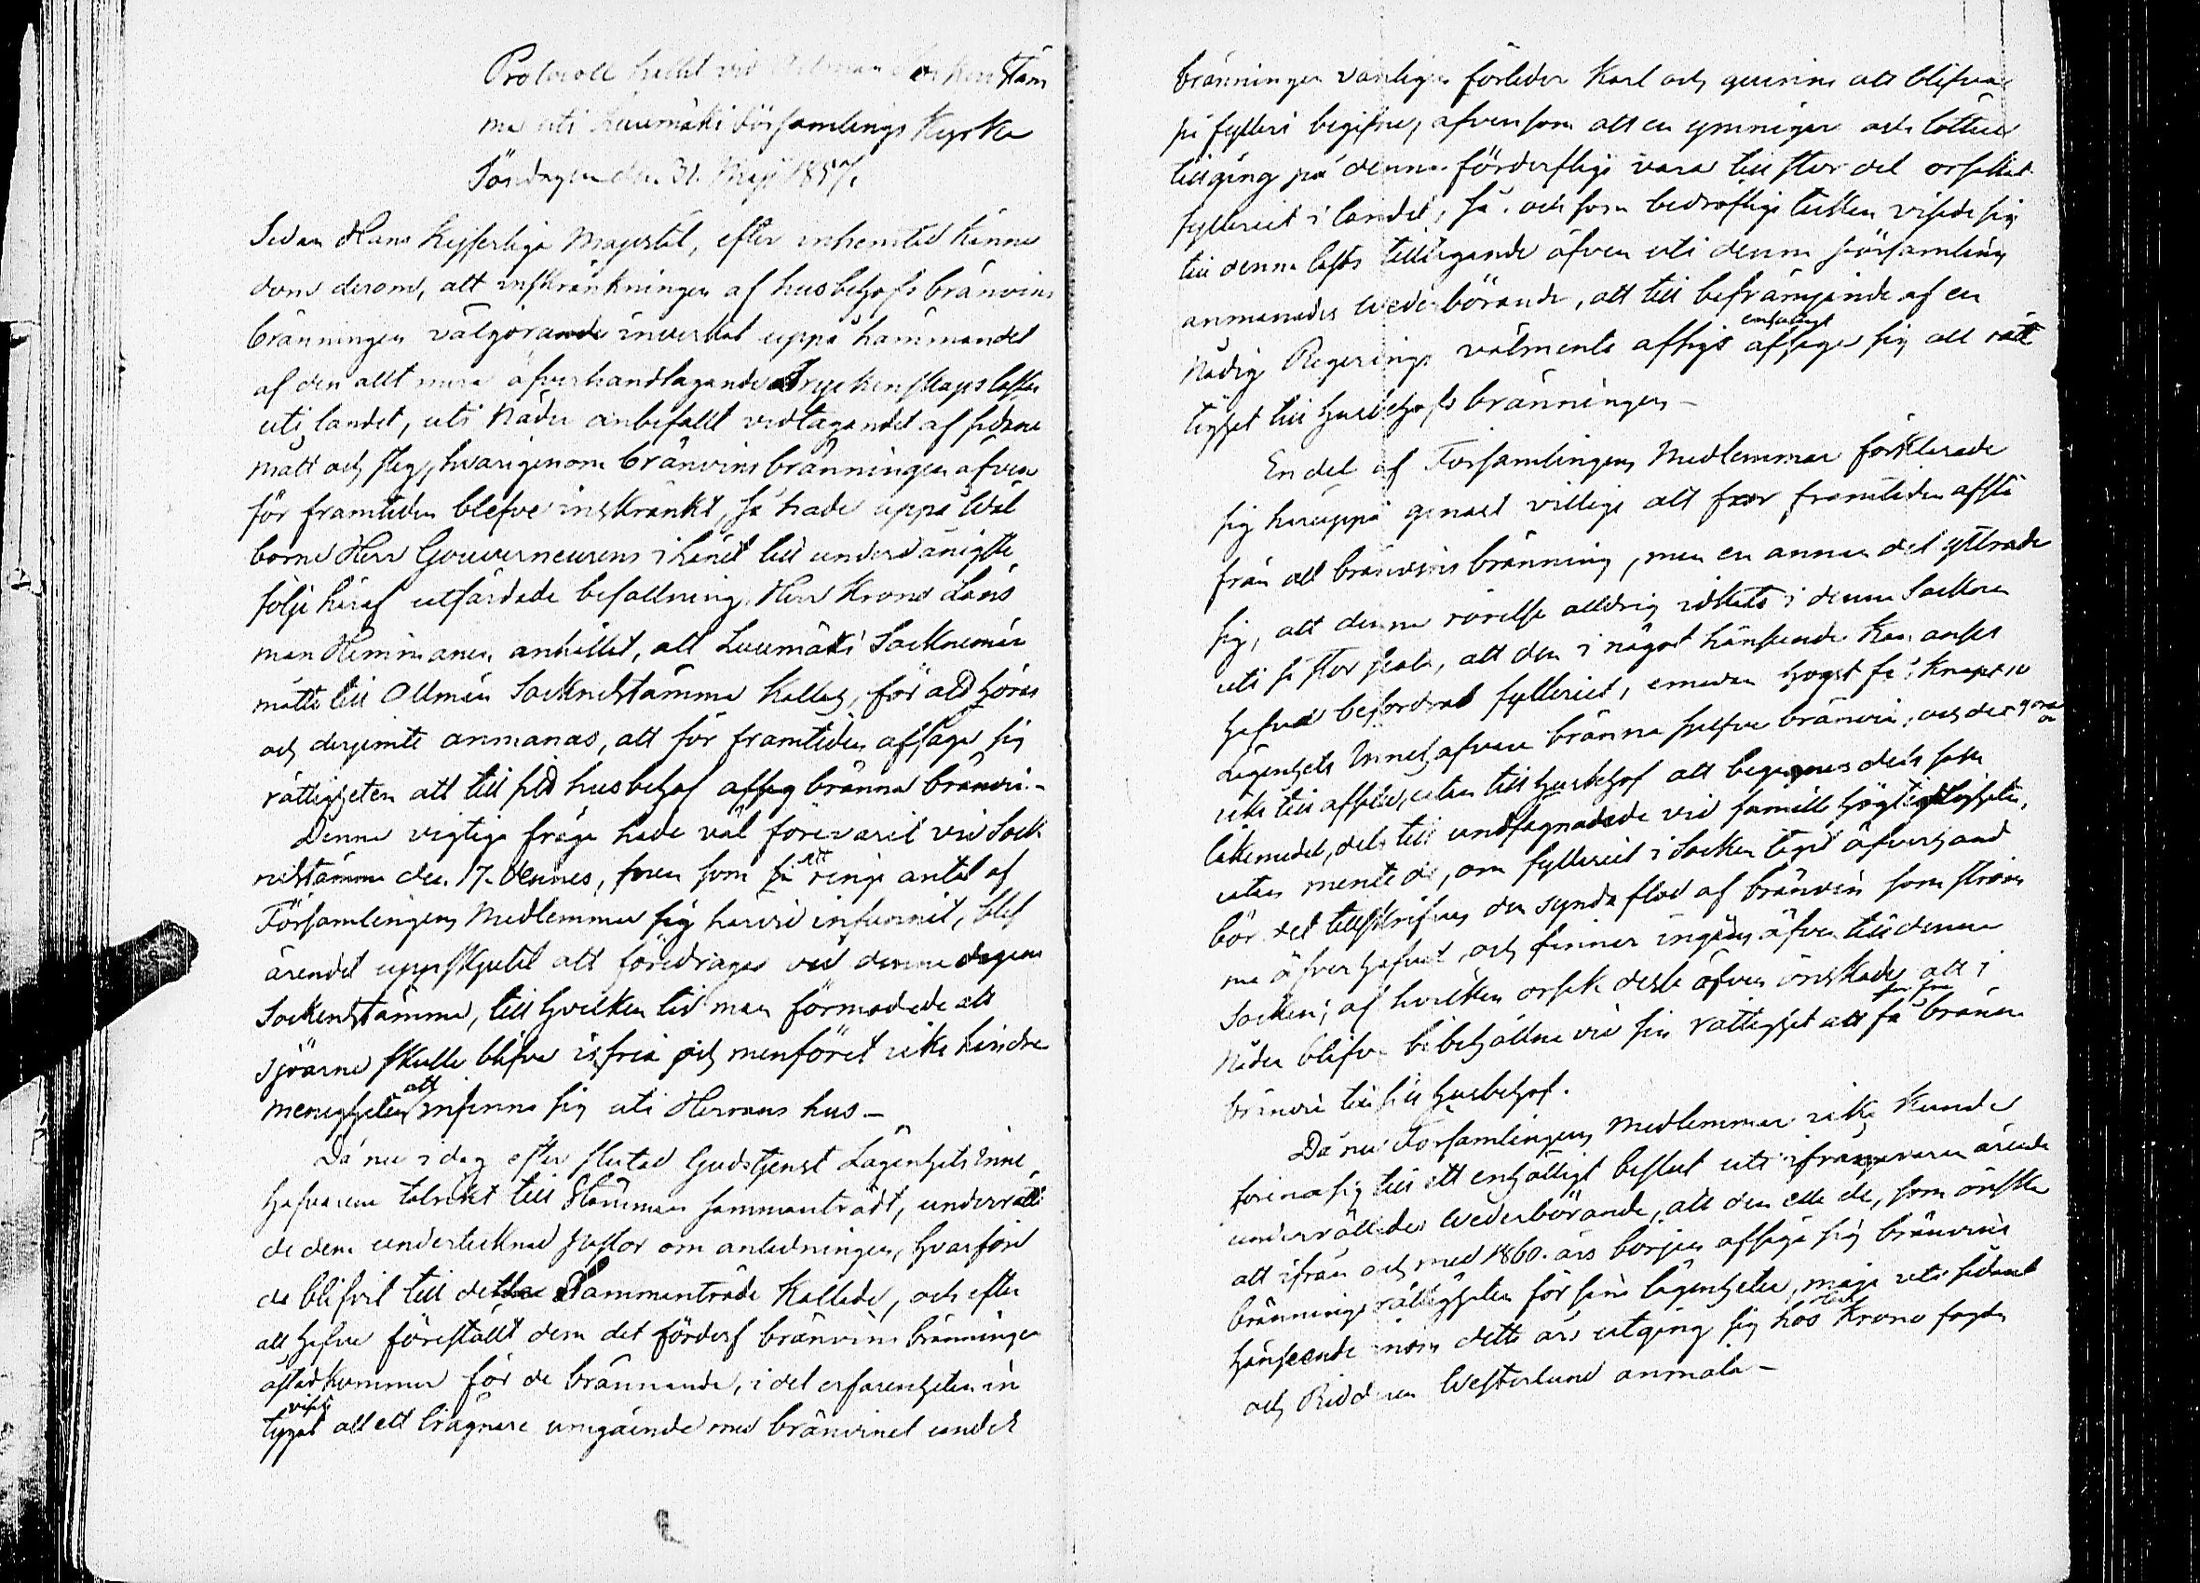 Protocoll hållit vid Allmän Sockenstäm
ma uti Luumäki Församlings Kyrka
Söndagen den 31. Maji 1857.
Sedan Hans Kejserliga Majestät, efter inhemtad känne
dom derom, att inskränkningen af husbehofs bränvins
bränningen välgörande inverkat uppå hämmandet
af den allt mera öfverhandtagande dryckenskaps lasten
uti landet, uti Nåder anbefallt vidtagandet af sådane
mått och steg, hvarigenom bränvins bränningen äfven
för framtiden blefve inskränkt, så hade uppå Wäl
borne Herr Gouverneurens i länet till underdånigste
följe häraf utfärdade befallning Herr Krono Läns
man Himmanen anhållit, att Luumäki Socknemän
måtte till Allmän Socknestämma kallas, för att höras
och derjemte anmanas, att för framtiden afsäga sig
rättigheten att till sitt husbehof bränna bränvin.-
Denna vigtiga fråga hade väl förevarit vid Sock
nestämma den 17. dennes, men som ett ringa antal af
Församlingens Medlemmar sig härvid infunnit, blef
ärendet uppskjutit att föredragas vid denna dagens
Sockenstämma, till hvilken tid man förmodade att
sjöarne skulle blifva isfria och menföret icke hindra
menigheten att infinna sig uti Herrans hus.-
Då nu i dag efter slutad Gudstjenst Lägenhets Inne
hafvarene talrikt till Stämman sammanträdt, underrätta
de dem undertecknad Pastor om anledningen, hvarföre
de blifvit till detta Sammanträde kallade, och efter
att hafva föreställt dem det förderf bränvins bränningen
åstadkommer för de brännande, i det erfarenheten in
tygat att ett trägnare umgående med bränvinet under
bränningen vanligen förleder Karl och qvinna att blifva
på fylleri begifne, äfvensom att en ymnigare och lättare
tillgång på denna förderfliga vara till stor del orsakat
fylleriet i landet, så och som bedröfliga tecken visade sig
till denna lasts tilltagande äfven uti denna församling
anmanades wederbörande, att till befrämjande af en
Nådig Regerings välmenta afsigt afsäga sig all rätt
tighet till husbehofs bränningen.-
En del af Församlingens Medlemmar förklarade
sig häruppå genast villige att för framtiden afstå
från all bränvins bränning, men en annan del yttrade
sig, att denna rörelse aldrig idkats i denna Socken
uti så stor skala, att den i något hänseende kan anses
hafva befordrat fylleriet, emedan högst få, knapt 10
Lägenhets Innehafvare bränna sjelfve bränvin, och det
icke till afsalu, utan till husbehof att begagnas dels som
läkemedel, dels till undfägnad vid familie högtidligheter,
utan mente de, om fylleriet i Socken tagit öfverhand
bör det tillskrifvas den syndaflod af bränvin som strömma
öfver hafvet och finner ingång äfven till denna
Socken; af hvilken orsak desse äfven önskade att i
Nåder blifva bibehållne vid sin rättighet att få bränna
bränvin till sitt husbehof.
Då nu Församlingens Medlemmar icke kunde
förena sig till ett enhälligt beslut uti ifrågavarande ärende
underrättades wederbörande, att den eller de, som önska
att ifrån och med 1860. års början afsäga sig bränvins
brännings rättigheten för sina lägenheter, måga uti sådant
hänseende inom detta års utgång sig hos Krono fogden
och Riddaren Westerlund anmäla.-